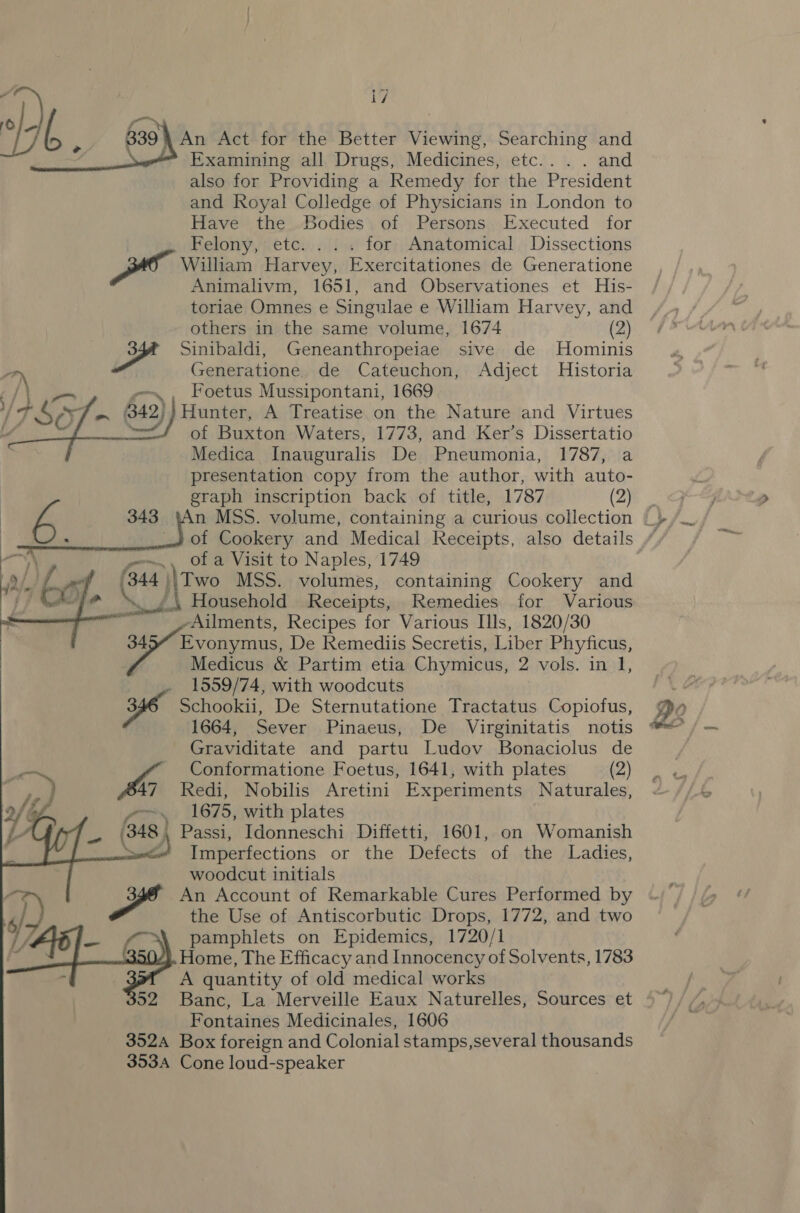 17
339 An Act for the Better Viewing, Searching and
Examining all Drugs, Medicines, etc.. . . and
also for Providing a Remedy for the President
and Royal Colledge of Physicians in London to
Have the Bodies of Persons Executed for
Felony, etc. . . . for Anatomical Dissections
340 William Harvey, Exercitationes de Generatione
Animalivm, 1651, and Observationes et His-
toriae Omnes e Singulae e William Harvey, and
others in the same volume, 1674 (2)
341 Sinibaldi, Geneanthropeiae sive de Hominis
Generatione de Cateuchon, Adject Historia
Foetus Mussipontani, 1669
342 Hunter, A Treatise on the Nature and Virtues
of Buxton Waters, 1773, and Ker's Dissertatio
Medica Inauguralis De Pneumonia, 1787, a
presentation copy from the author, with auto-
graph inscription back of title, 1787 (2)
343 An MSS. volume, containing a curious collection
of Cookery and Medical Receipts, also details
of a Visit to Naples, 1749
344 Two MSS. volumes, containing Cookery and
Household Receipts, Remedies for Various
Ailments, Recipes for Various Ills, 1820/30
345 Evonymus, De Remediis Secretis, Liber Phyficus,
Medicus & Partim etia Chymicus, 2 vols. in 1,
1559/74, with woodcuts
346 Schookii, De Sternutatione Tractatus Copiofus,
1664, Sever Pinaeus, De Virginitatis notis
Graviditate and partu Ludov Bonaciolus de
Conformatione Foetus, 1641, with plates (2)
347 Redi, Nobilis Aretini Experiments Naturales,
1675, with plates
348 Passi, Idonneschi Diffetti, 1601, on Womanish
Imperfections or the Defects of the Ladies,
woodcut initials
349 An Account of Remarkable Cures Performed by
the Use of Antiscorbutic Drops, 1772, and two
pamphlets on Epidemics, 1720/1
350 Home, The Efficacy and Innocency of Solvents, 1783
351 A quantity of old medical works
352 Banc, La Merveille Eaux Naturelles, Sources et
Fontaines Medicinales, 1606
352A Box foreign and Colonial stamps,several thousands
353A Cone loud-speaker